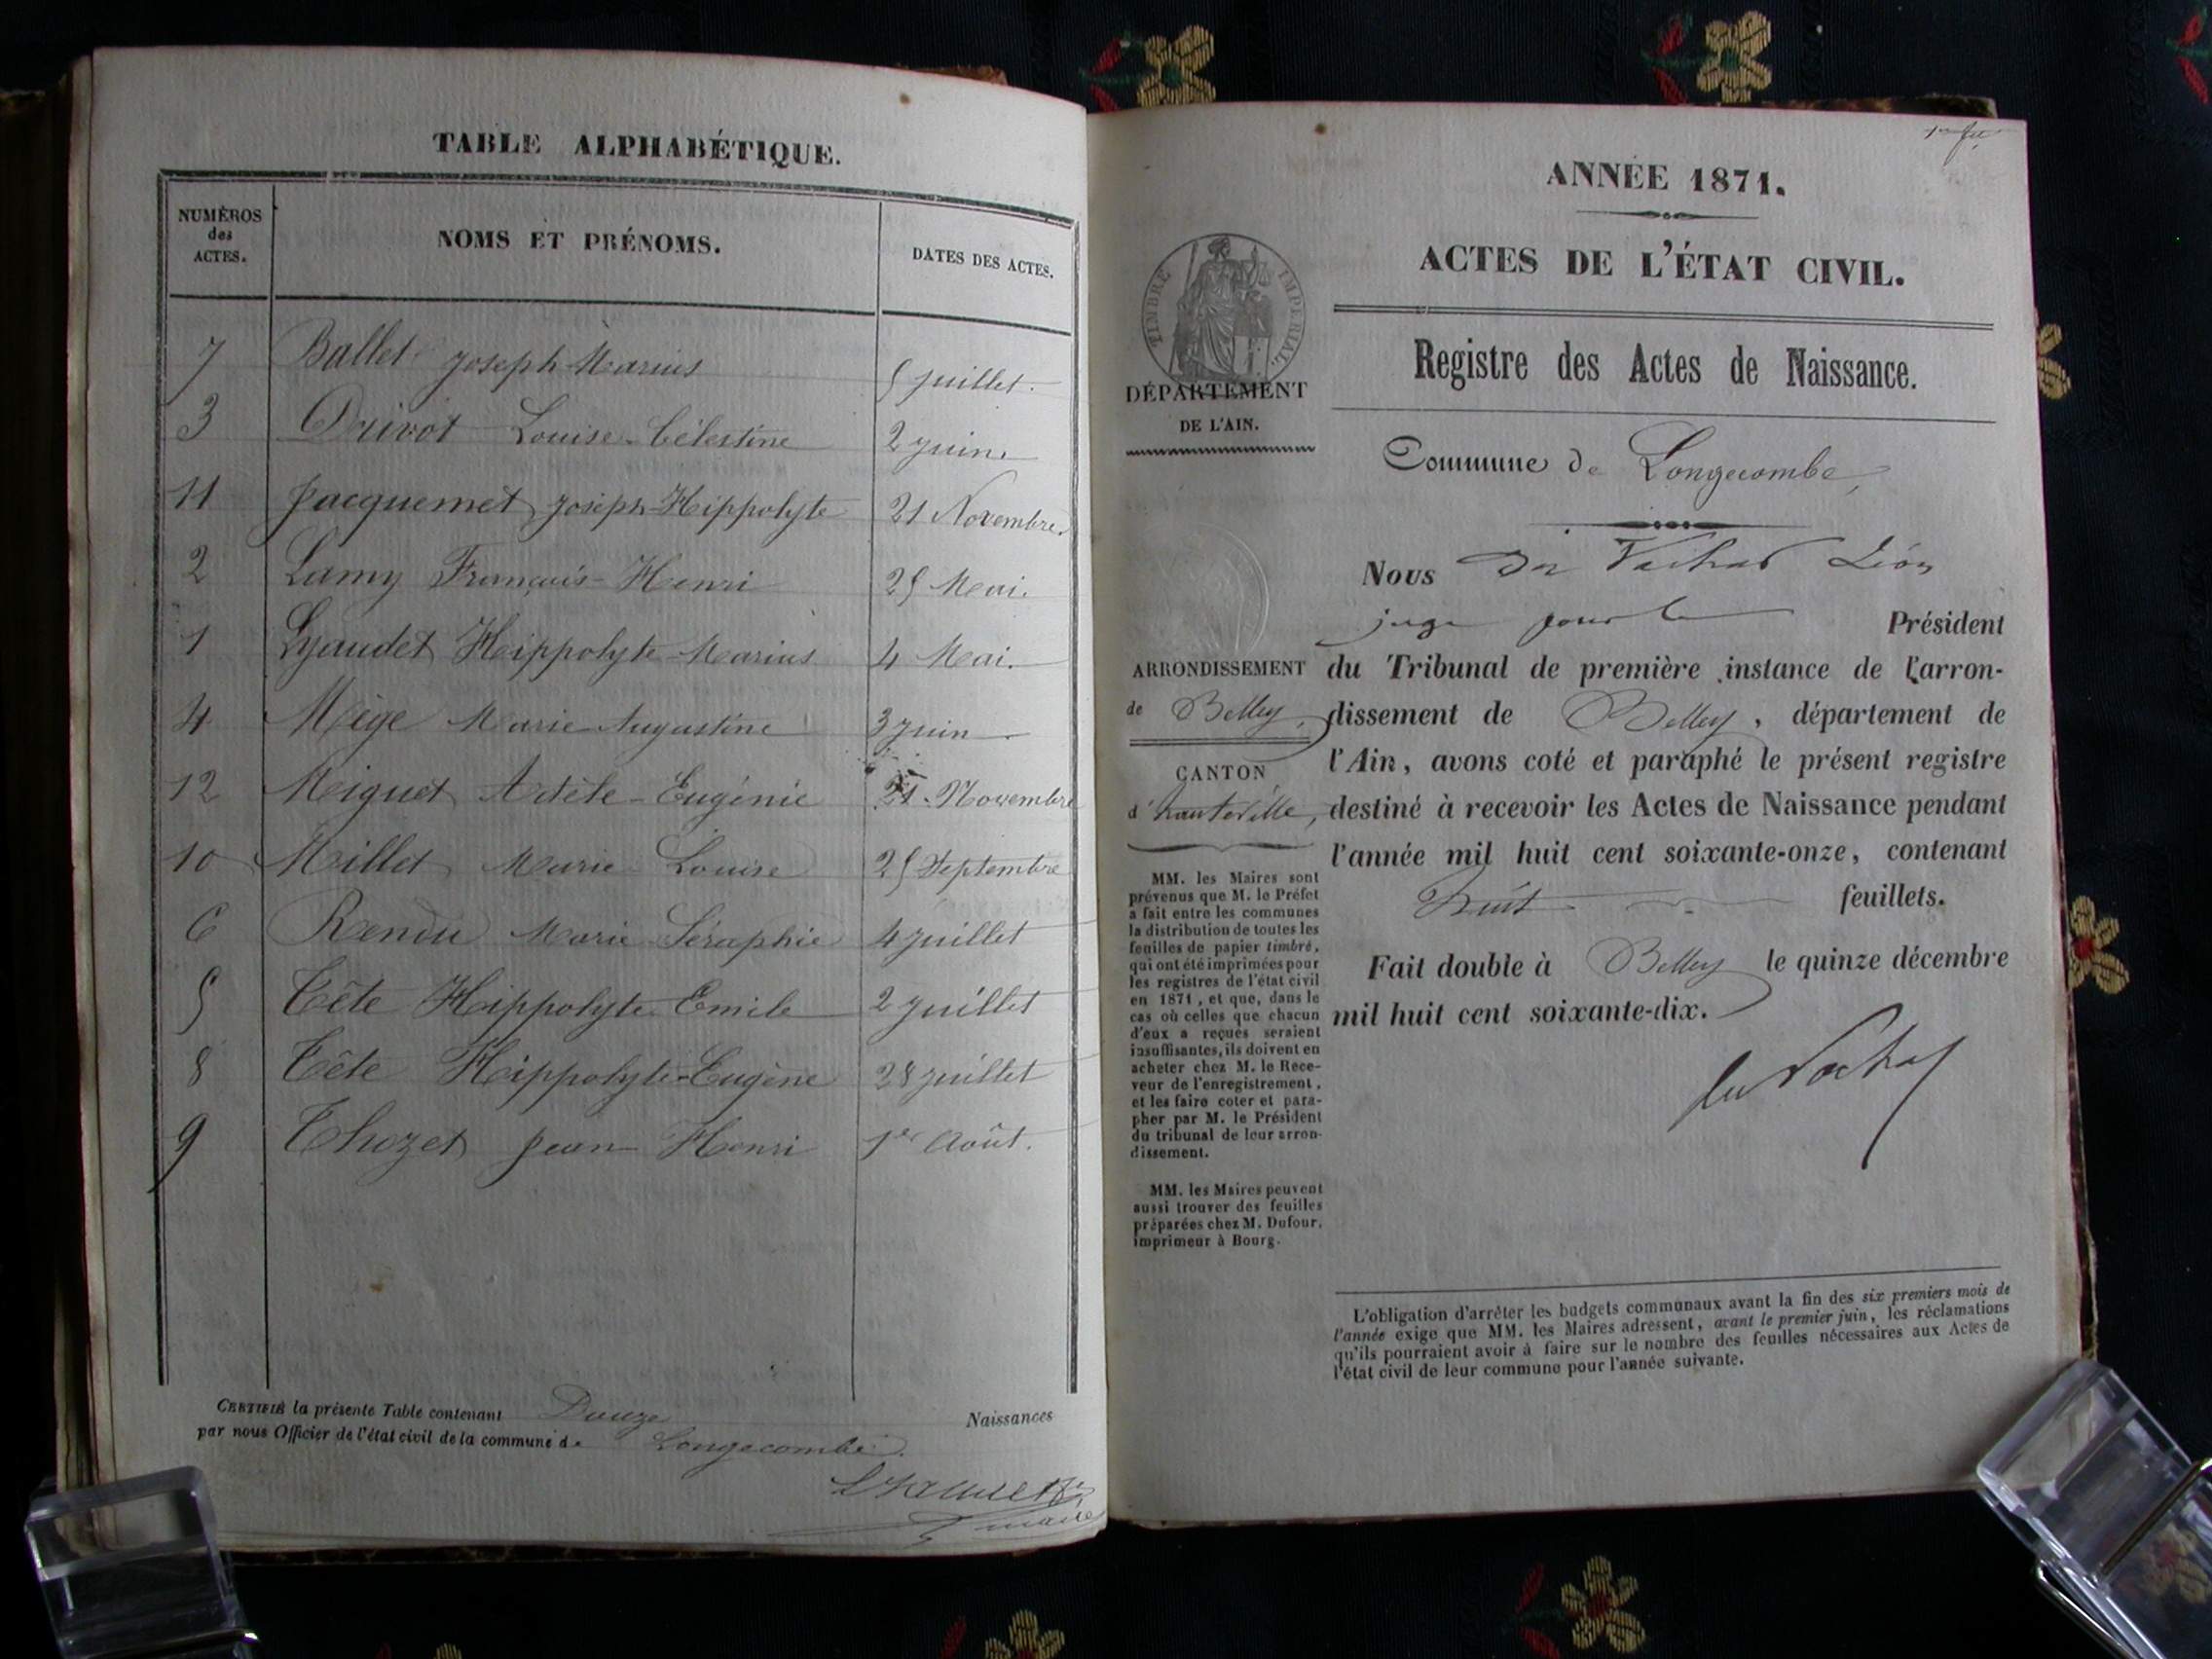 TABLE ALPHABÉTIQUE.
NUMÉROS des ACTES.
NOMS ET PRÉNOMS.
DATES DES ACTES.
7 Ballet Joseph-Marius 5 Juillet.
3 Drivot Louise-Célestine 2 Juin.
11 Jacquemet Joseph-Hippolyte 21 Novembre.
2 Lamy François-Henri 25 Mai.
1 Lyaudet Hippolyte-Marius 4 Mai.
4 Mège Marie Augustine 3 Juin
12 Miguet Adèle-Eugénie 21 Novembre
10 Millet Marie-Louise 25 Septembre
6 Rendu Marie Séraphie 4 Juillet
5 Tête Hippolyte Emile 2 Juillet
8 Tête Hippolyte-Eugène 28 Juillet
9 Thozet Jean-Henri 1er Août.
CERTIFIÉ la présente Table contenant Douze Naissances
par nous Officier de l'état civil de la commune de Longecombe.
maire
ANNÉE 1871.
ACTES DE L'ÉTAT CIVIL.
TIMBRE IMPÉRIAL.
DÉPARTEMENT
DE L'AIN.
Registre des Actes de Naissance.
Commune de Longecombe,
Nous Léon
juge pour le Président
ARRONDISSEMENT
de Belley,
du Tribunal de première instance de l'arron-
dissement de Belley, département de
l'Ain, avons coté et paraphé le présent registre
CANTON
d'hauteville,
destiné à recevoir les Actes de Naissance pendant
l'année mil huit cent soixante-onze, contenant
huit feuillets.
Fait double à Belley le quinze décembre
mil huit cent soixante-dix.
MM. les Maires sont
prévenus que M. le Préfet
a fait entre les communes
la distribution de toutes les
feuilles de papier timbré,
qui ont été imprimées pour
les registres de l'état civil
en 1871, et que, dans le
cas où celles que chacun
d'eux a reçues seraient
insuffisantes, ils doivent en
acheter chez M. le Rece-
veur de l'enregistrement,
et les faire coter et para-
pher par M. le Président
du tribunal de leur arron-
dissement.
MM. les Maires peuvent
aussi trouver des feuilles
préparées chez M. Dufour,
imprimeur à Bourg.
L'obligation d'arrêter les budgets communaux avant la fin des six premiers mois de
l'année exige que MM. les Maires adressent, avant le premier juin, les réclamations
qu'ils pourraient avoir à faire sur le nombre des feuilles nécessaires aux Actes de
l'état civil de leur commune pour l'année suivante.